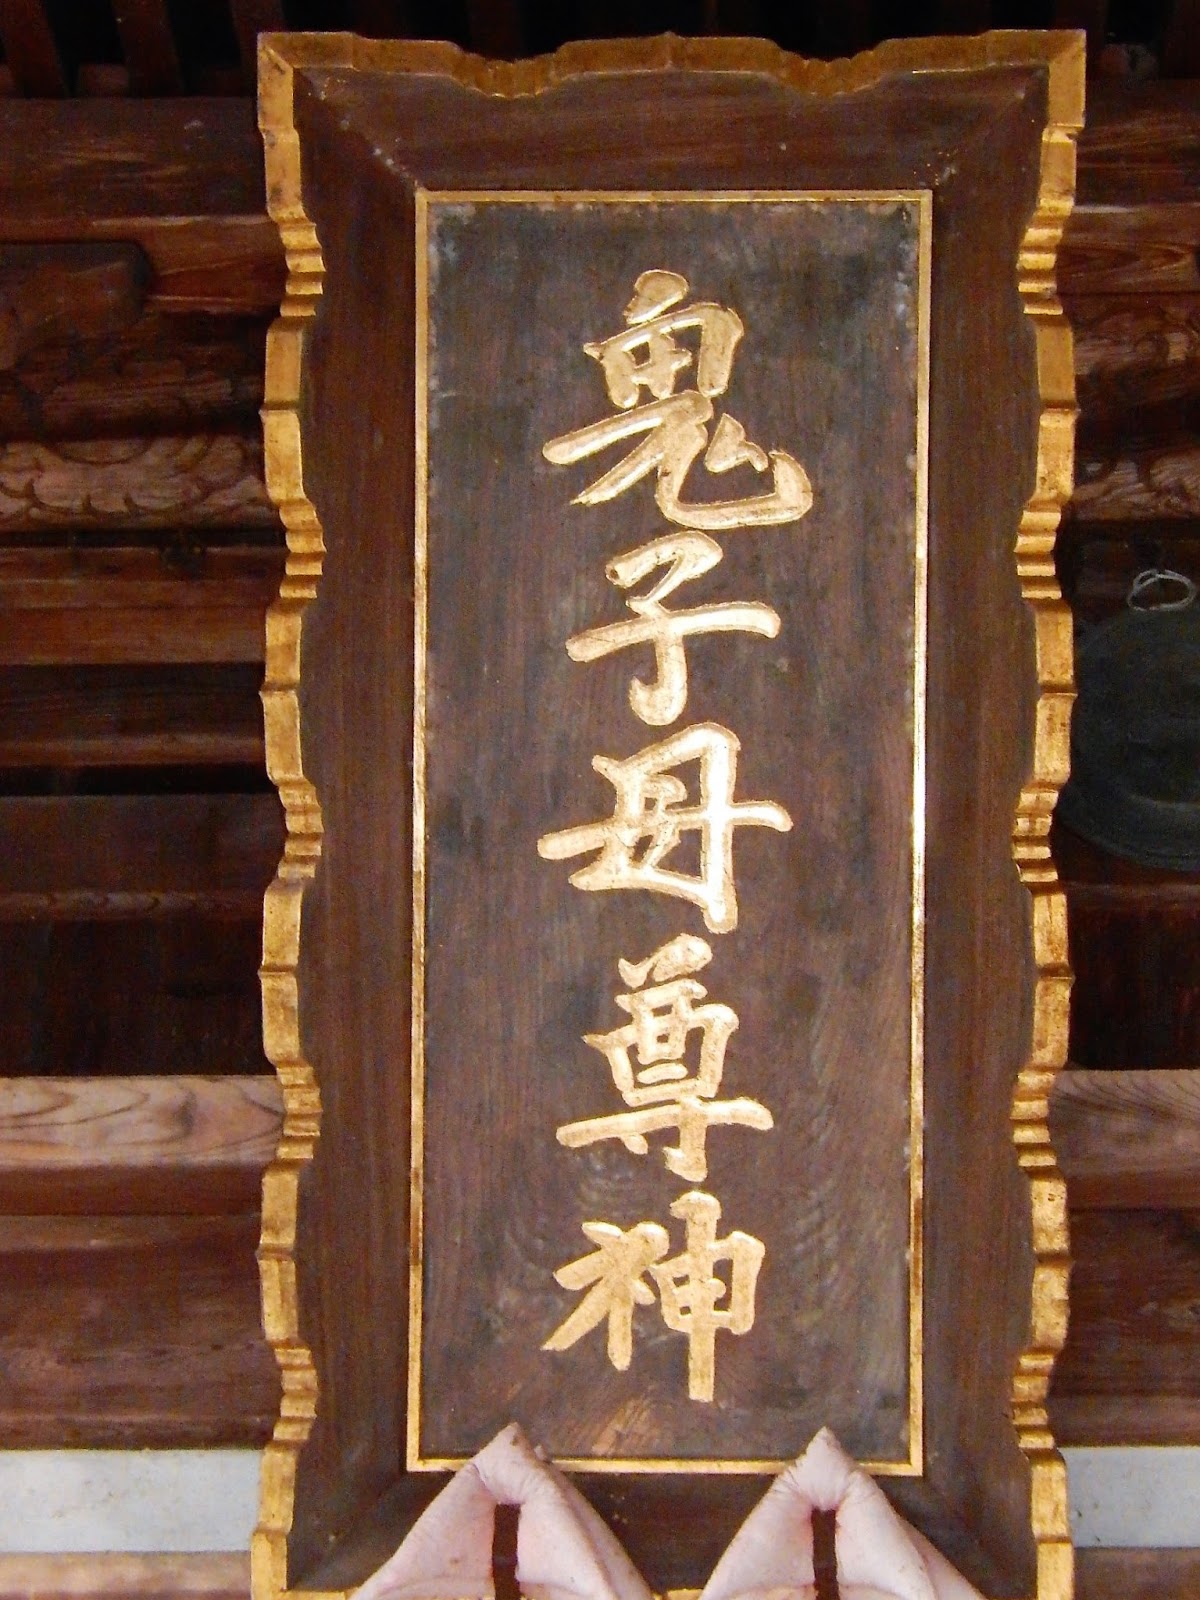 鬼子母尊神